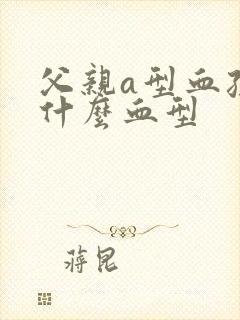 父親a型血
什麼血型
蔣昆